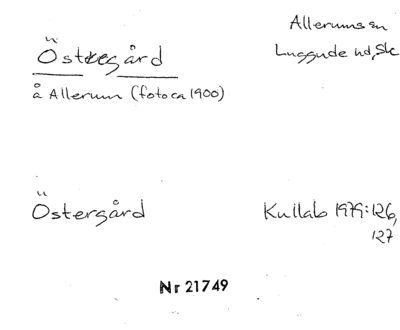 Östregård
Allerums sn
Luggude hd, Sk
å Allerum (foto ca 1900)
Östergård
Kullab 1979:126,
127
Nr 21749